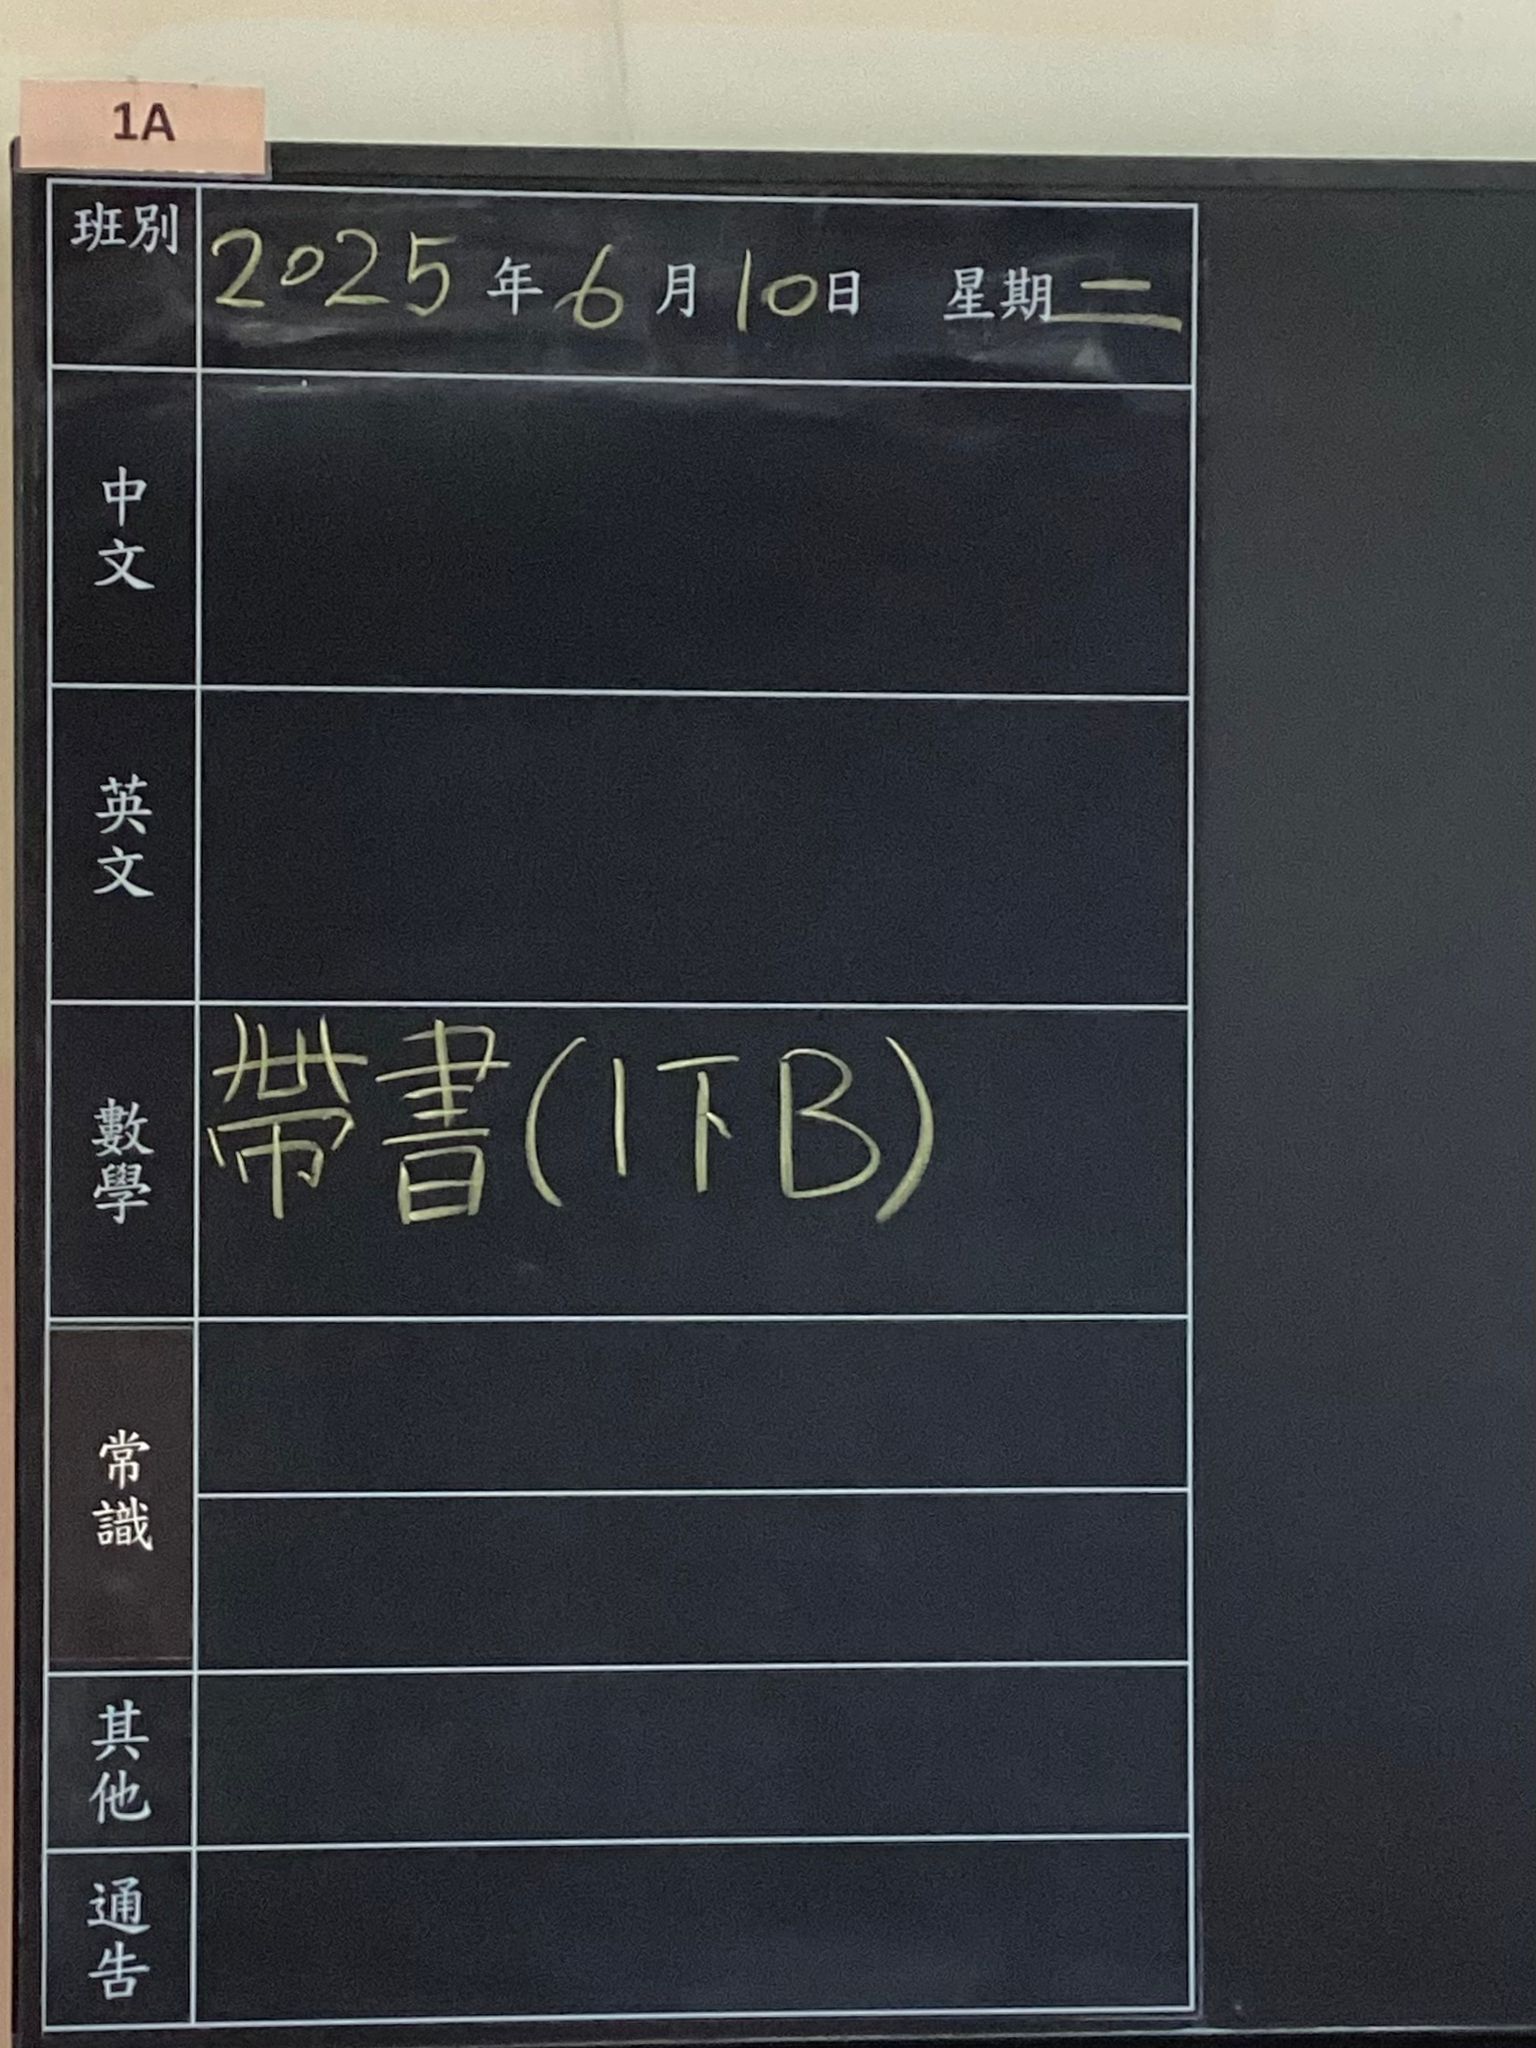 1A
班別 2025年6月10日 星期二
中文
英文
數學 帶書(1下B)
常識
其他
通告